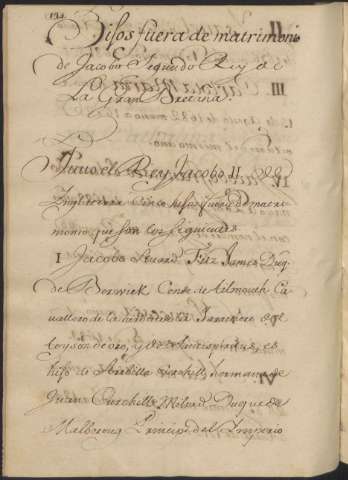 Hijos fuera de matrimonio
de Jacobo Segundo Rey de
La Gran Bretaña.
Tuvo el Rey Jacobo II. de
Inglaterra cinco hijos fuera de matri
monio, que son los siguientes
I Jacobo Stuard Fitz James Duq
de Berwick Conde de Tilmouth Ca
vallero de la de la Jarretiere, del
toyson de oro, y de Santispiritus, es
hijo de Arabella Churchill, hermana de
Juan Curchill Milord Duque de
Malboroug Principe del Imperio